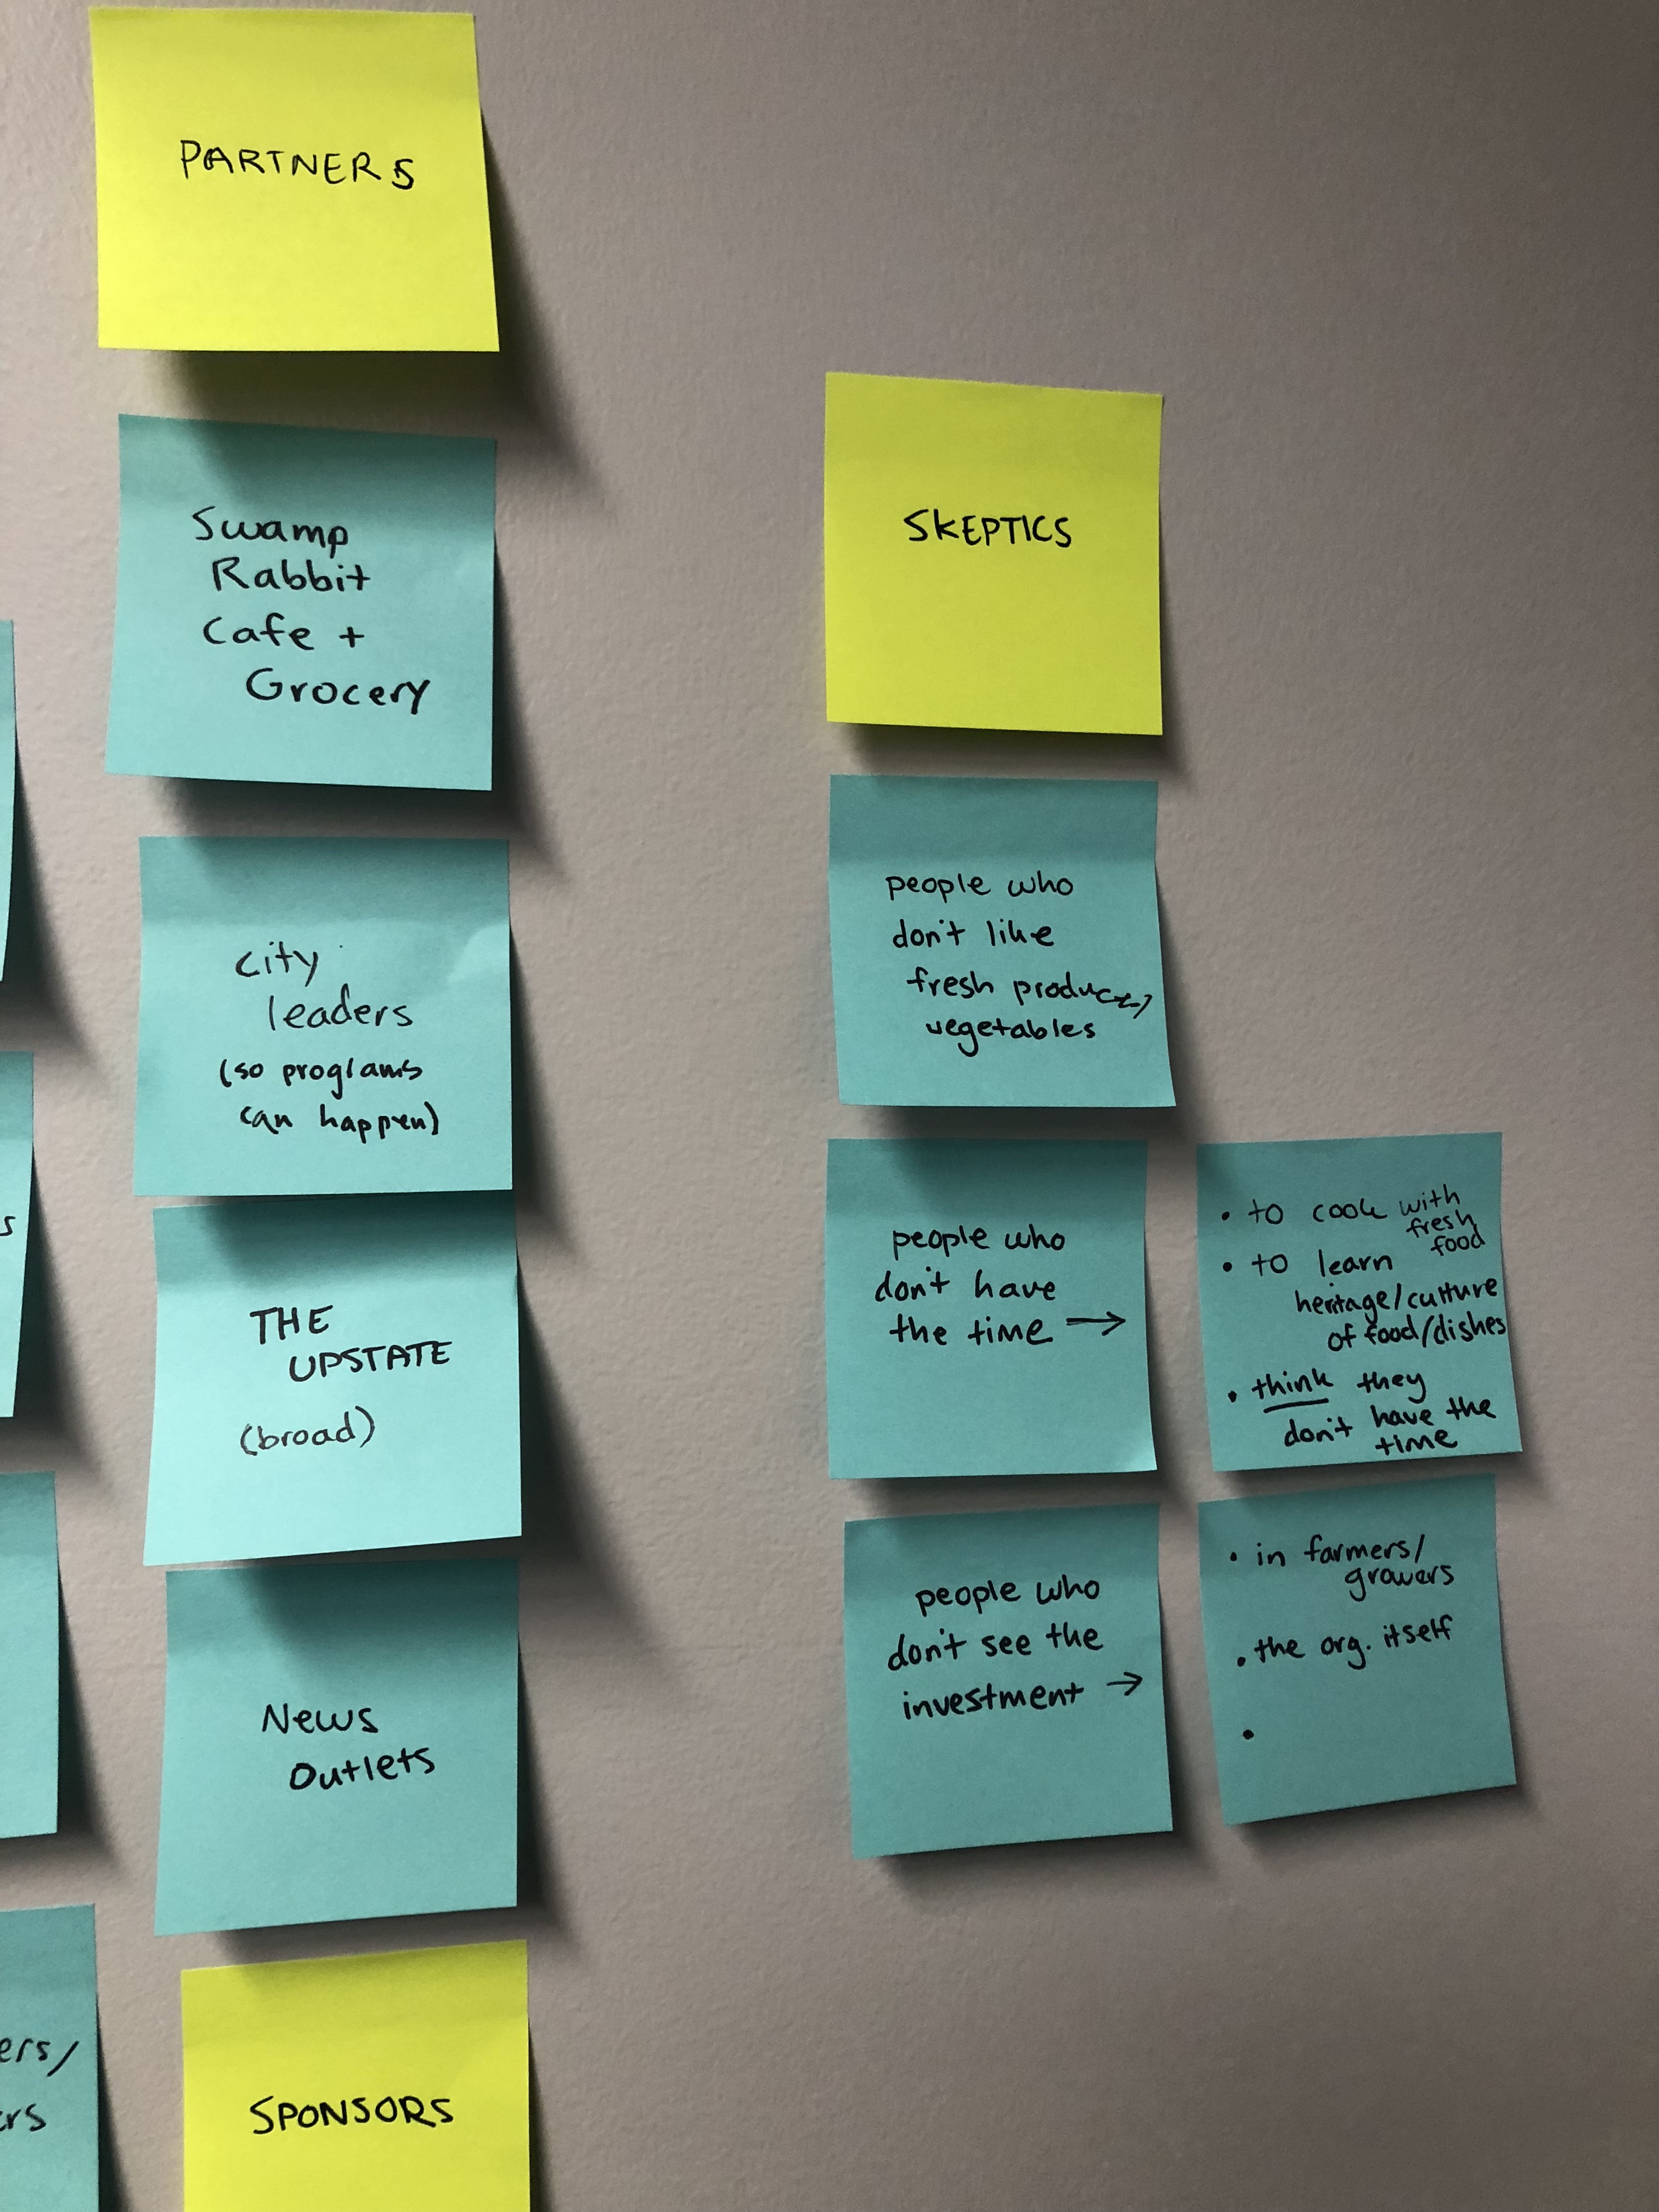 PARTNERS
Swamp
Rabbit
Cafe +
Grocery
city
leaders
(so programs
can happen)
THE
UPSTATE
(broad)
News
Outlets
SPONSORS
SKEPTICS
people who
don't like
fresh produce/
vegetables
people who
don't have
the time →
• to cook with
fresh
food
• to learn
heritage/culture
of food/dishes
• think they
don't have the
time
people who
don't see the
investment →
• in farmers/
growers
• the org. itself
•